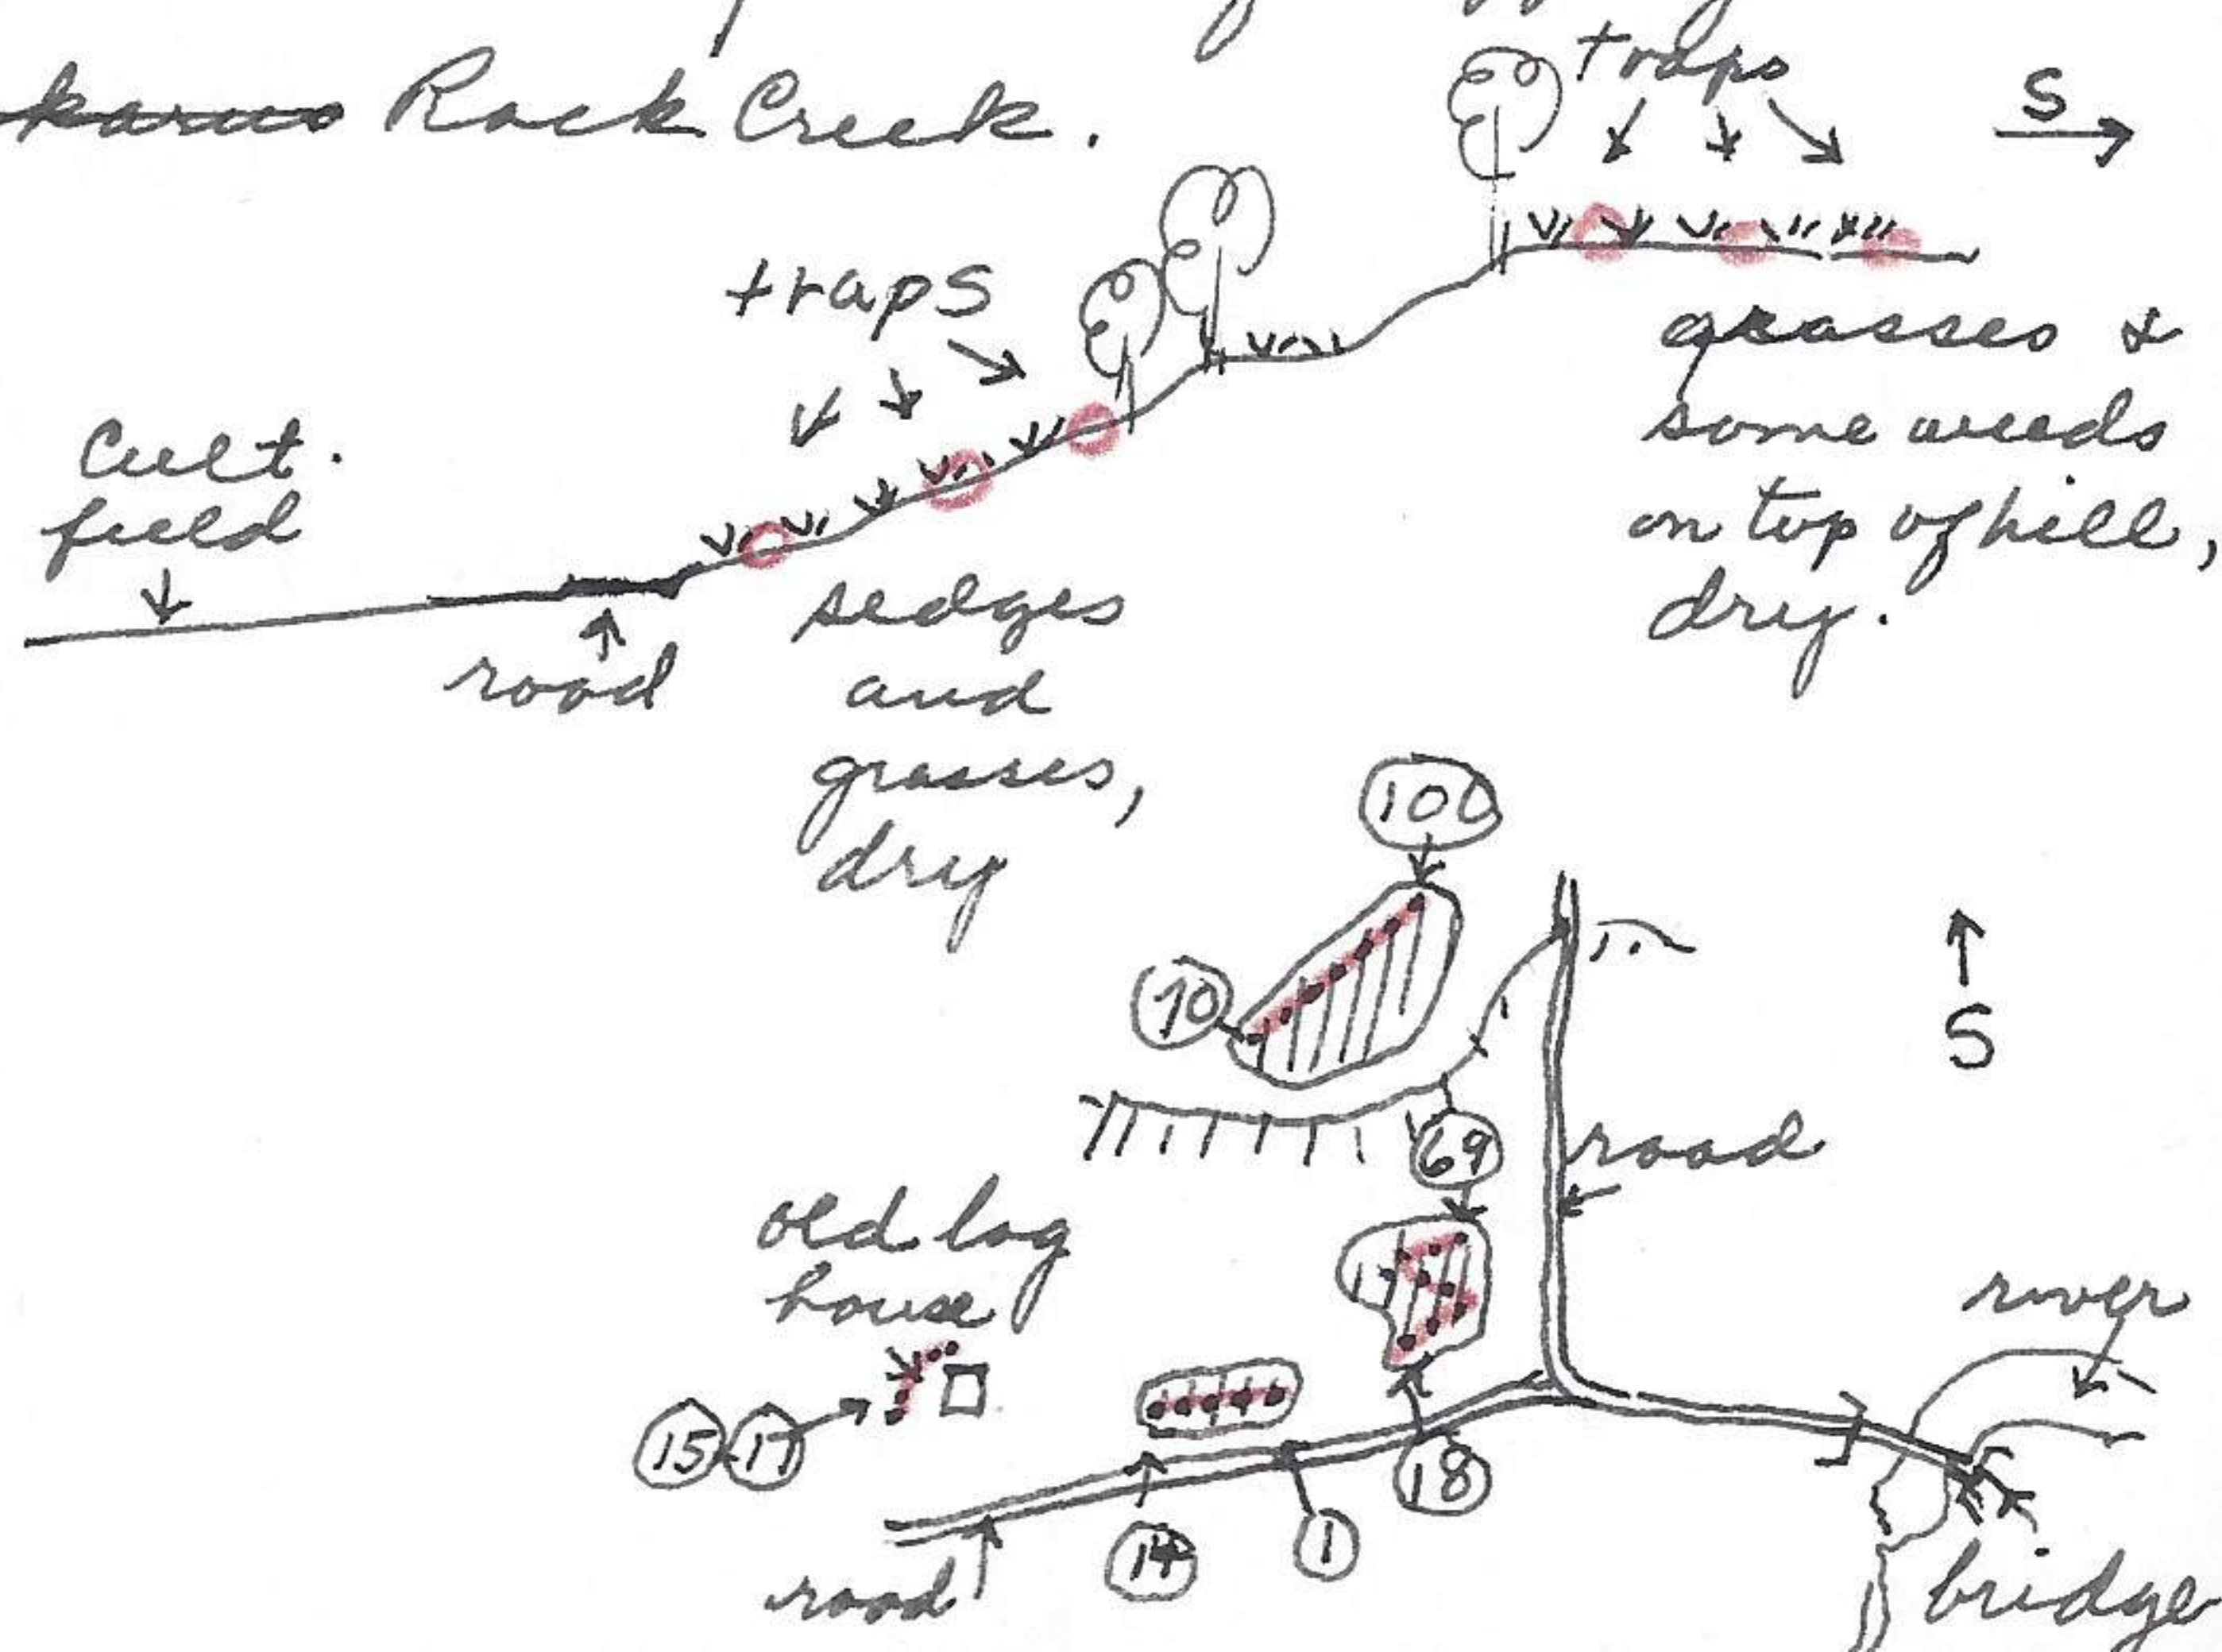 Rock Creek.
traps
S
traps
grasses &
some weeds
on top of hill,
dry.
Cult.
field
road
sedges
and
grasses,
dry
100
70
S
69
road
old log
house
river
15 17
18
14
1
road
bridge